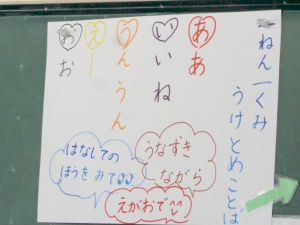 一ねん一くみ
うけとめことば
あ
ああ
い
いいね
う
うんうん
え
えー
お
おお
うなずき
ながら
はなしての
ほうをみて
えがおで